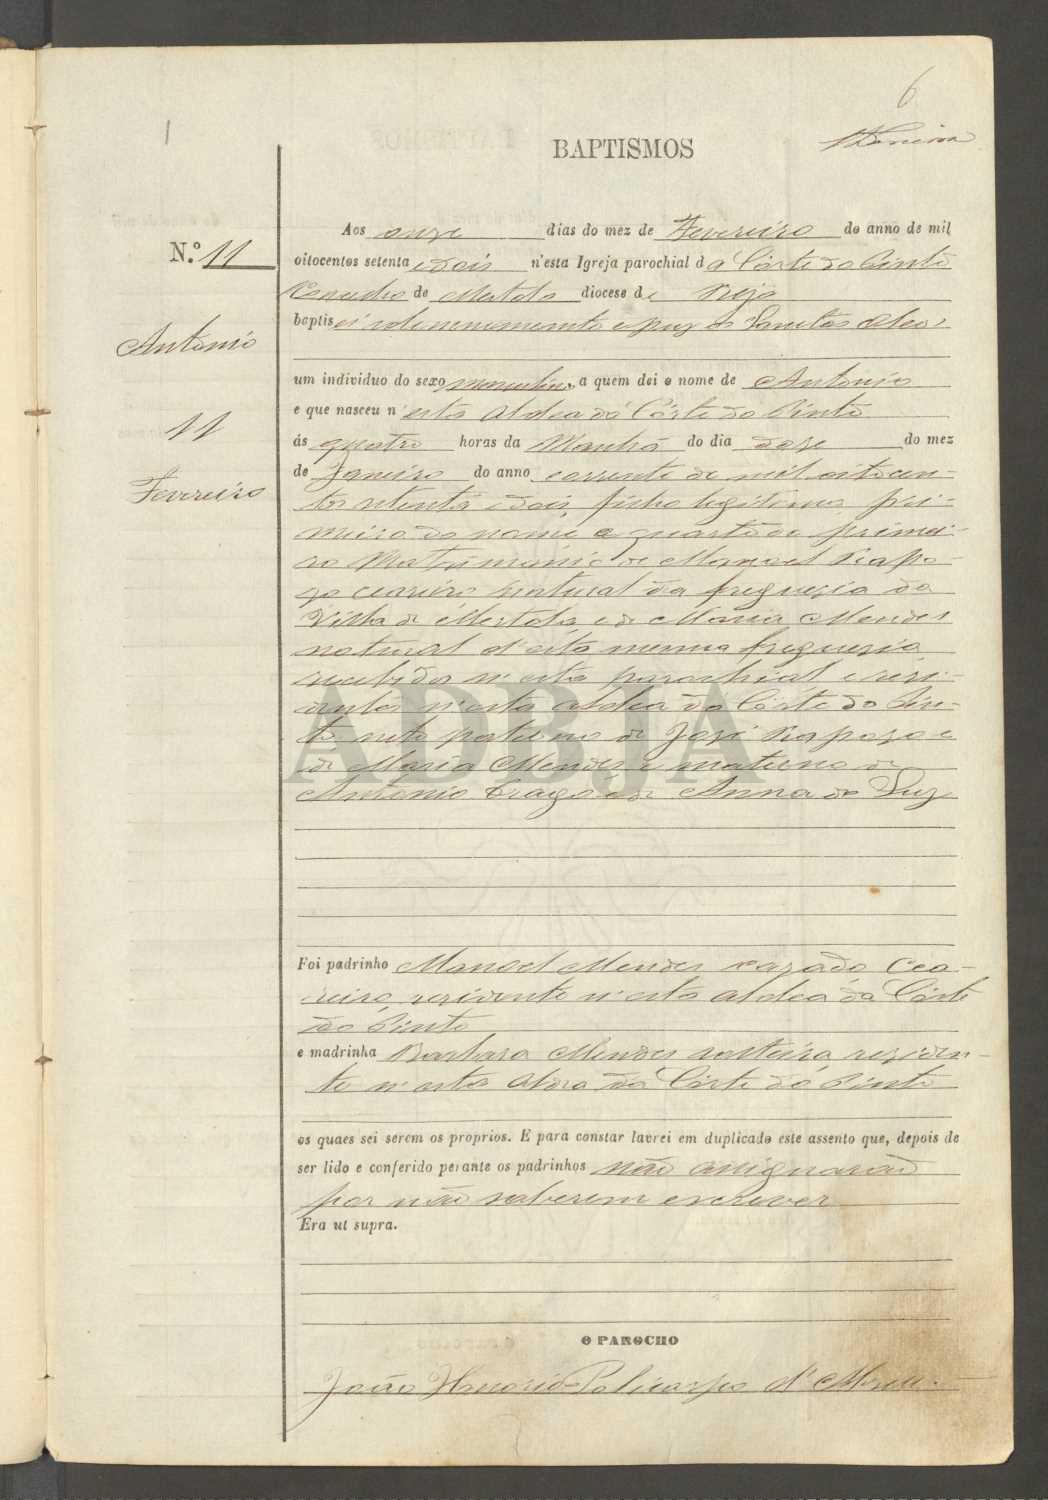 6
1
BAPTISMOS
N.º 11
Antonio
11
Fevereiro
Aos onze dias do mez de Fevereiro do anno de mil
oitocentos setenta e dois n'esta Igreja parochial da Côrte do Pinto
Concelho de Mertola diocese de Beja
baptisei solemnemente e puz os Sanctos oleos
um individuo do sexo masculino a quem dei o nome de Antonio
e que nasceu n'esta aldea da Côrte do Pinto
ás quatro horas da Manhã do dia doze do mez
de Janeiro do anno corrente de mil oitocen-
tos setenta e dois, filho legitimo pri-
meiro do nome e quarto do primei-
ro Matrimonio de Manoel Rapo-
zo ceareiro natural da freguezia da
Villa de Mertola, e de Maria Mendes
natural d'esta mesma freguezia
recebidos n'esta parochial e rezi-
dentes n'esta aldea da Côrte do Pin-
to neto paterno de José Rapozo e
de Maria Mendes e materno de
Antonio Trago e de Anna da Luz
ADBJA
Foi padrinho Manoel Mendes cazado Cea-
reiro, rezidente n'esta aldea da Côrte
do Pinto
e madrinha Barbara Mendes solteira reziden-
te n'esta aldea da Côrte do Pinto
os quaes sei serem os proprios. E para constar lavrei em duplicado este assento que, depois de
ser lido e conferido perante os padrinhos não assignarão
por não saberem escrever
Era ut supra.
O PAROCHO
João Honorio Policarpo d'